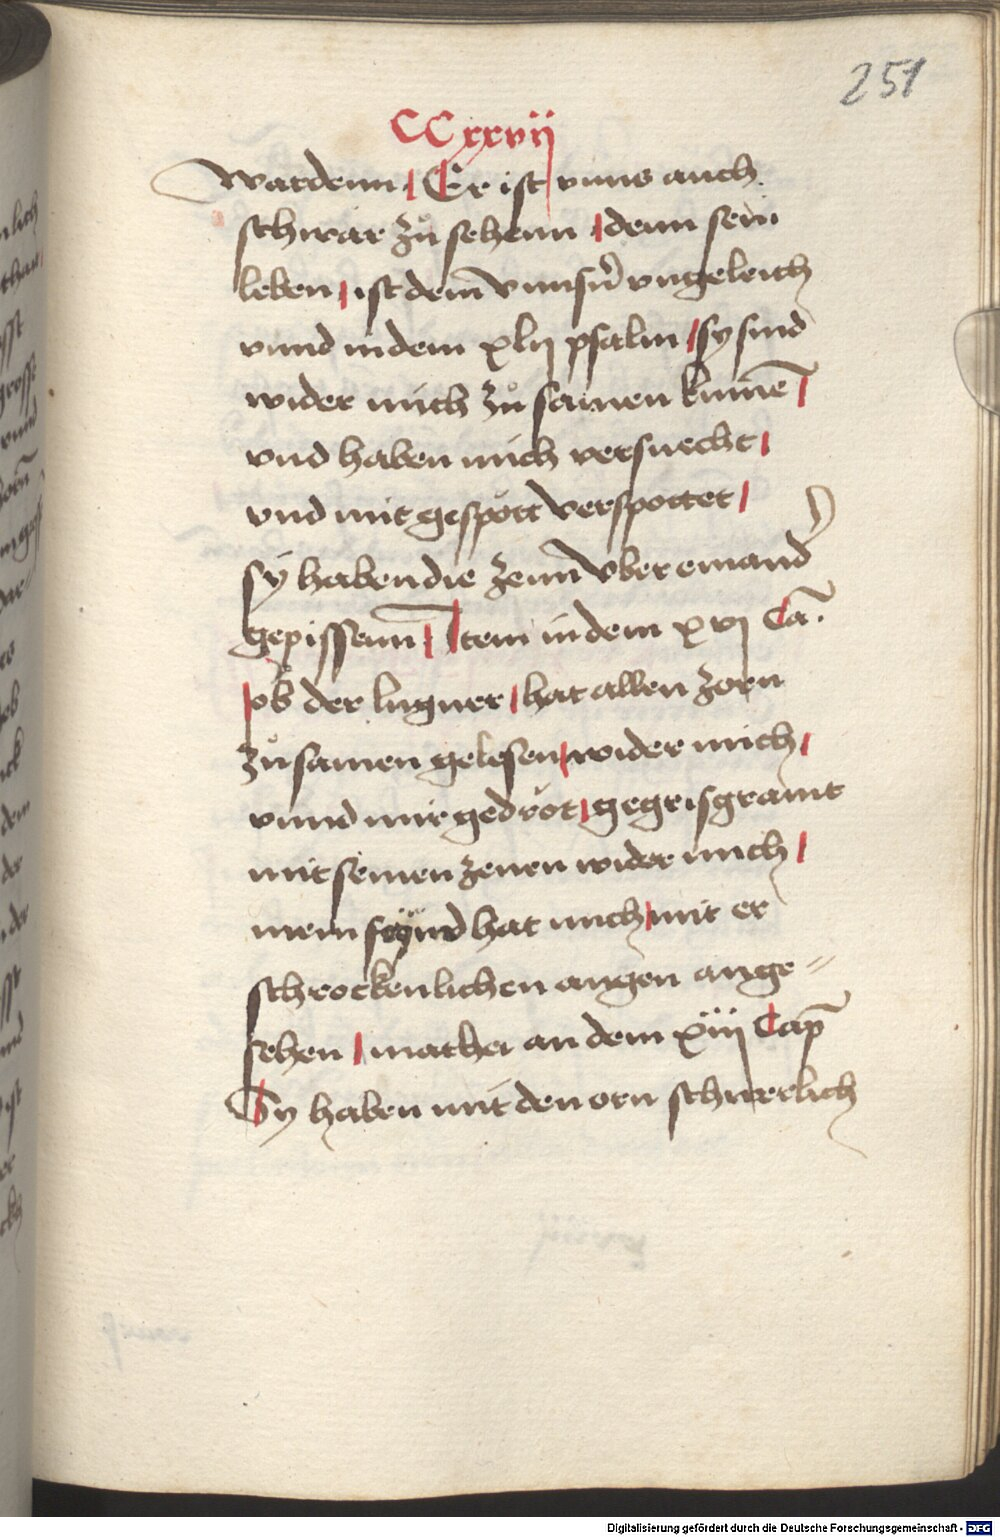 251
CCxxvii
wardenn Er ist vnns auch
schwär zů sehenn denn sein
leben ist dem̄ vnnsn̄ vngeleich
vnnd in dem xlij psalm sy sind
wider mich zů samen kumē
vnd haben mich versuecht
vnd mit gespött verspottet
sÿ haben die zenn vber einand
gepissenn Item in dem xvj Ca.
ob der lugner hat allen zorn
zů samen gelesen wider mich
vnnd mir gedröt gegrisgramt
mit seinen zenen wider mich
mein feÿnd hat mich mit er
schrockenlichen augen ange=
sehen mathei an dem xiij Cap
Sy haben mit den orn schwerlich
Digitalisierung gefördert durch die Deutsche Forschungsgemeinschaft - DFG